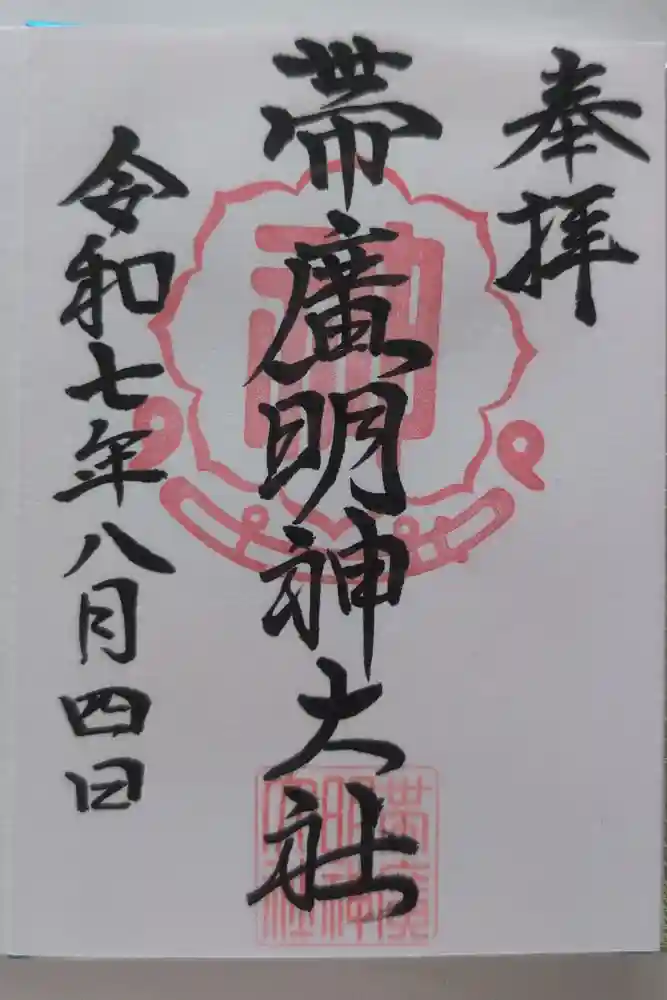 奉拝
帯廣明神大社
令和七年八月四日
神
帯廣
明神
大社